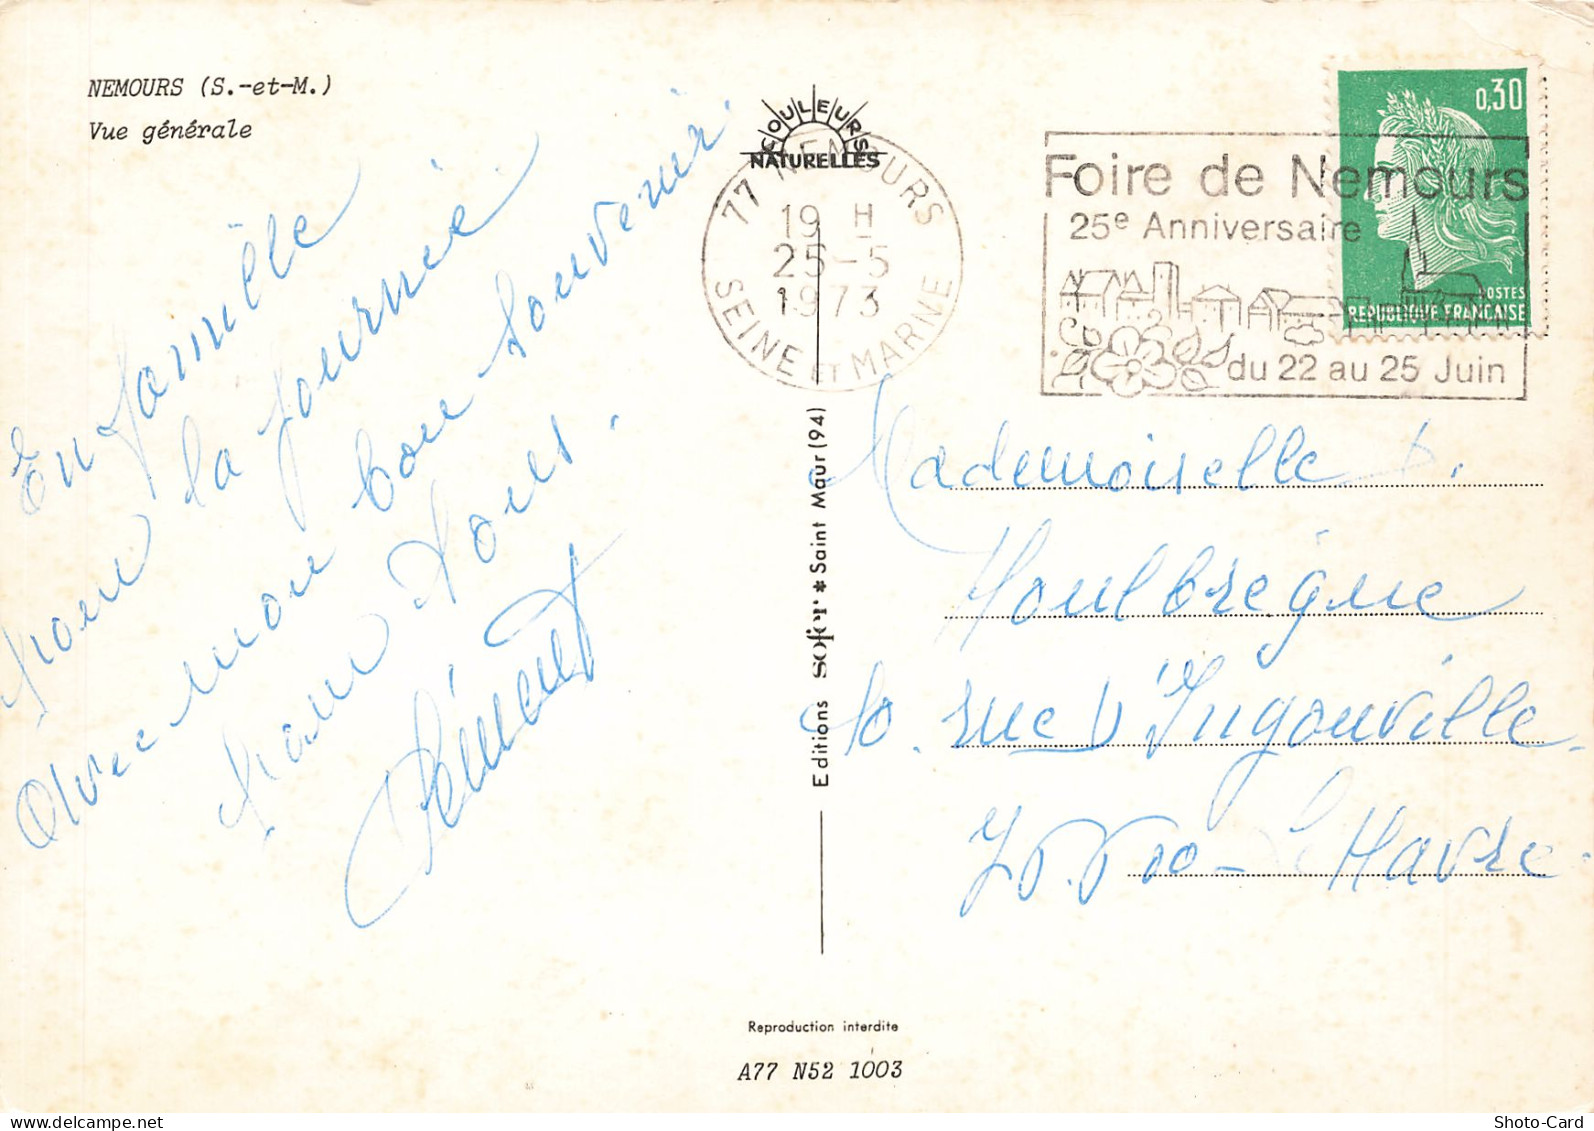 NEMOURS (S.-et-M.)
Vue générale
COULEURS
NATURELLES
77 NEMOURS
19 H
25-5
1973
SEINE ET MARNE
Foire de Nemours
25e Anniversaire
du 22 au 25 Juin
0,30
POSTES
REPUBLIQUE FRANCAISE
En famille
pour la journée
Avec mon bon souvenir.
pour tous.
Clément
Editions sofer * Saint Maur (94)
Mademoiselle
Houlbrègue
rue D'Ingouville.
Le Havre.
Reproduction interdite
A77 N52 1003
Shoto-Card